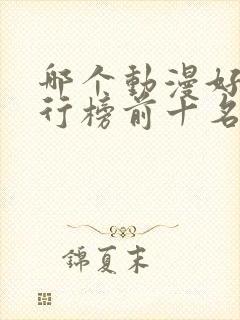 哪个動漫好
行榜前十名
錦夏末